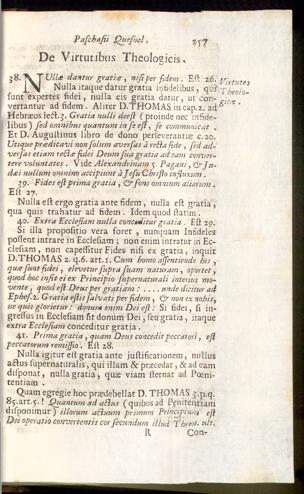 Paschasii Quesnel.
257
De Virtutibus Theologicis.
38. NUllæ dantur gratiæ, nisi per fidem. Est 26.
Virtutes
Theolo-
gicæ.
Nulla itaque datur gratia infidelibus, qui
sunt expertes fidei, nulla eis gratia datur, ut con-
vertantur ad fidem. Aliter D. THOMAS in cap. 2. ad
Hebræos lect. 3. Gratia nulli deest (proinde nec infide-
libus) sed omnibus quantum in se est, se communicat.
Et D. Augustinus libro de dono perseverantiæ c. 20.
Utique prædicavi non solum aversas à recta fide, sed ad-
versas etiam rectæ fidei Deum sua gratia ad eam conver-
tere voluntates. Vide Alexandrinam 5. Pagani, & Ju-
dæi nullum omnino accipiunt à Jesu Christo influxum.
39. Fides est prima gratia, & fons omnium aliarum.
Est 27.
Nulla est ergo gratia ante fidem, nulla est gratia,
qua quis trahatur ad fidem. Idem quod statim.
40. Extra Ecclesiam nulla conceditur gratia. Est 29.
Si illa propositio vera foret, nunquam Infideles
possent intrare in Ecclesiam; non enim intratur in Ec-
clesiam, non capessitur Fides nisi ex gratia, inquit
D. THOMAS 2. q. 6. art. 1. Cum homo assentiendo his,
quæ sunt fidei, elevetur supra suam naturam, oportet,
quod hoc insit ei ex Principio supernaturali interius mo-
vente, quod est Deus per gratiam: .... unde dicitur ad
Ephes. 2. Gratia estis salvati per fidem, & non ex vobis,
ne quis glorietur: donum enim Dei est: Si fides, si in-
gressus in Ecclesiam sit donum Dei, seu gratia, itaque
extra Ecclesiam conceditur gratia.
41. Prima gratia, quam Deus concedit peccatori, est
peccatorum remissio. Est 28.
Nulla igitur est gratia ante justificationem, nullus
actus supernaturalis, qui illam & præcedat, & ad eam
disponat, nulla gratia, quæ viam sternat ad Pœni-
tentiam.
Quam egregie hoc prædebellat D. THOMAS 3. p. q.
85. art. 5. ! Quantum ad actus (quibus ad Penitentiam
disponimur) illorum actuum primum Principium est
Dei operatio convertentis cor secundum illud Thren. ult.
R
Con-